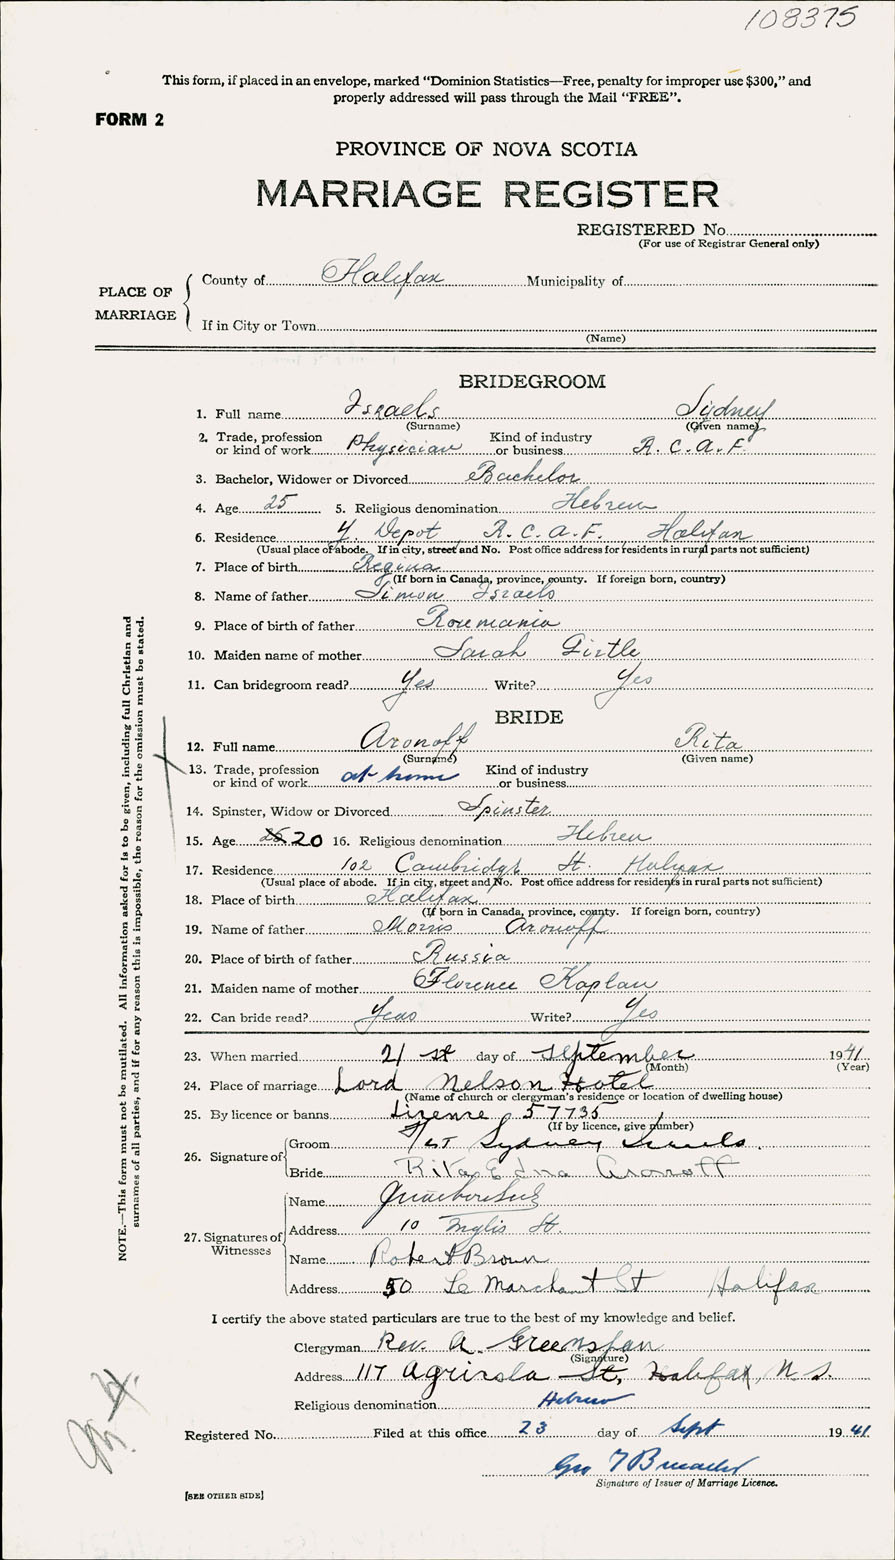 108375
This form, if placed in an envelope, marked "Dominion Statistics—Free, penalty for improper use $300," and
properly addressed will pass through the Mail "FREE".
FORM 2
PROVINCE OF NOVA SCOTIA
MARRIAGE REGISTER
REGISTERED No.
(For use of Registrar General only)
PLACE OF MARRIAGE
County of Halifax Municipality of
If in City or Town
(Name)
BRIDEGROOM
1. Full name Israels Sydney
(Surname) (Given name)
2. Trade, profession or kind of work Physician Kind of industry or business R.C.A.F.
3. Bachelor, Widower or Divorced Bachelor
4. Age 25 5. Religious denomination Hebrew
6. Residence Y. Depot R.C.A.F. Halifax
(Usual place of abode. If in city, street and No. Post office address for residents in rural parts not sufficient)
7. Place of birth Regina
(If born in Canada, province, county. If foreign born, country)
8. Name of father Simon Israels
9. Place of birth of father Roumania
10. Maiden name of mother Sarah Girtle
11. Can bridegroom read? Yes Write? Yes
BRIDE
12. Full name Aronoff Rita
(Surname) (Given name)
13. Trade, profession or kind of work at home Kind of industry or business
14. Spinster, Widow or Divorced Spinster
15. Age 20 16. Religious denomination Hebrew
17. Residence 102 Cambridge St. Halifax
(Usual place of abode. If in city, street and No. Post office address for residents in rural parts not sufficient)
18. Place of birth Halifax
(If born in Canada, province, county. If foreign born, country)
19. Name of father Morris Aronoff
20. Place of birth of father Russia
21. Maiden name of mother Florence Kaplan
22. Can bride read? Yes Write? Yes
23. When married 21 st day of September 1941
(Month) (Year)
24. Place of marriage Lord Nelson Hotel
(Name of church or clergyman's residence or location of dwelling house)
25. By licence or banns License 57735
(If by licence, give number)
26. Signature of
Groom Sydney Israels
Bride Rita Edna Aronoff
27. Signatures of Witnesses
Name
Address 10 St.
Name Robert Brown
Address 50 Le Marchant St Halifax
I certify the above stated particulars are true to the best of my knowledge and belief.
Clergyman Rev. A. Greenspan
(Signature)
Address 117 Agricola St, Halifax, N.S.
Religious denomination Hebrew
Registered No. Filed at this office 23 day of Sept 1941
Geo
Signature of Issuer of Marriage Licence.
[SEE OTHER SIDE]
NOTE.—This form must not be mutilated. All information asked for is to be given, including full Christian and
surnames of all parties, and if for any reason this is impossible, the reason for the omission must be stated.